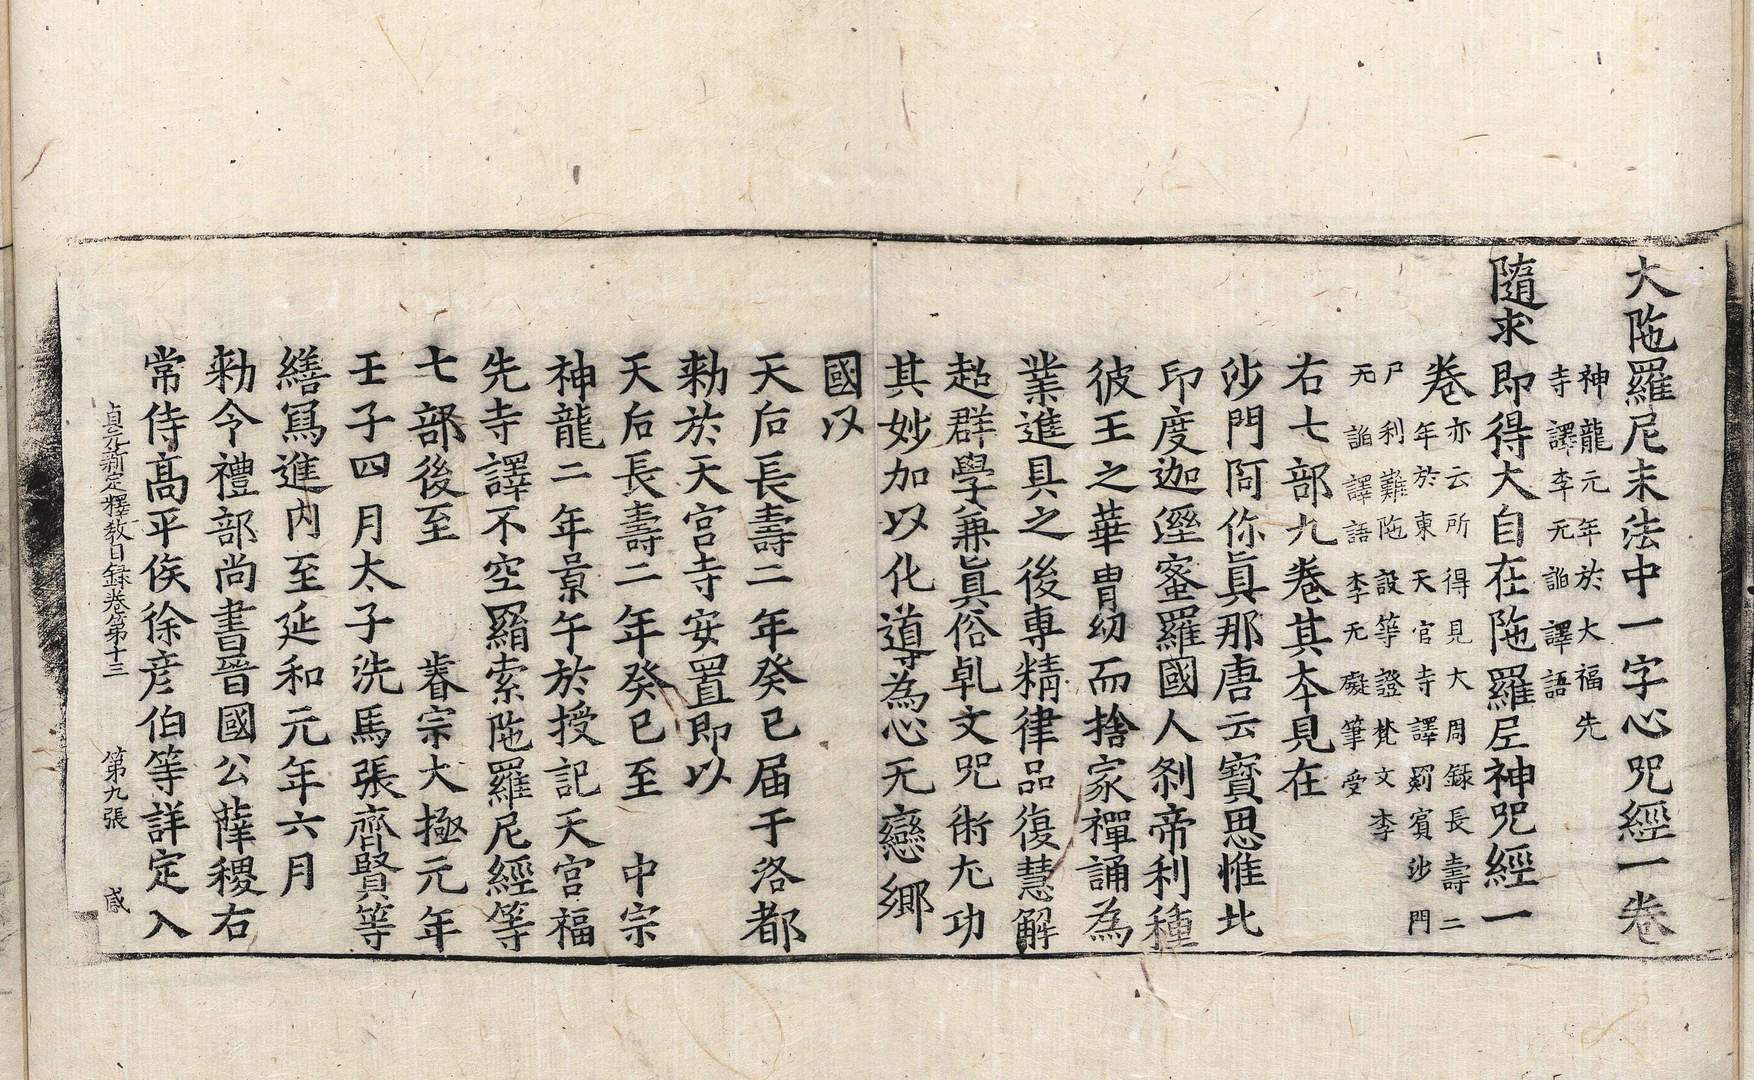 大陁羅尼末法中一字心咒經一卷
神龍元年於大福先
寺譯李无諂譯語
隨求即得大自在陁羅尼神咒經一
卷
亦云所得見大周録長壽二
年於東天宫寺譯罽賓沙門
尸利難陁設等證梵文李
无諂譯語李无礙筆受
右七部九卷其本見在
沙門阿你真那唐云寶思惟北
印度迦溼蜜羅國人刹帝利種
彼王之華胄幼而捨家禪誦為
業進具之後專精律品復慧解
超群學兼真俗乹文咒術尤功
其妙加以化導為心无戀鄉
國以
天后長壽二年癸巳届于洛都
勑於天宫寺安置即以
天后長壽二年癸巳至　中宗
神龍二年景午於授記天宫福
先寺譯不空羂索陁羅尼經等
七部後至　睿宗大極元年
壬子四月太子洗馬張齊賢等
繕寫進内至延和元年六月
勑令禮部尚書晉國公薛稷右
常侍高平侯徐彦伯等詳定入
貞元新定釋教目録卷第十三　第九張　感